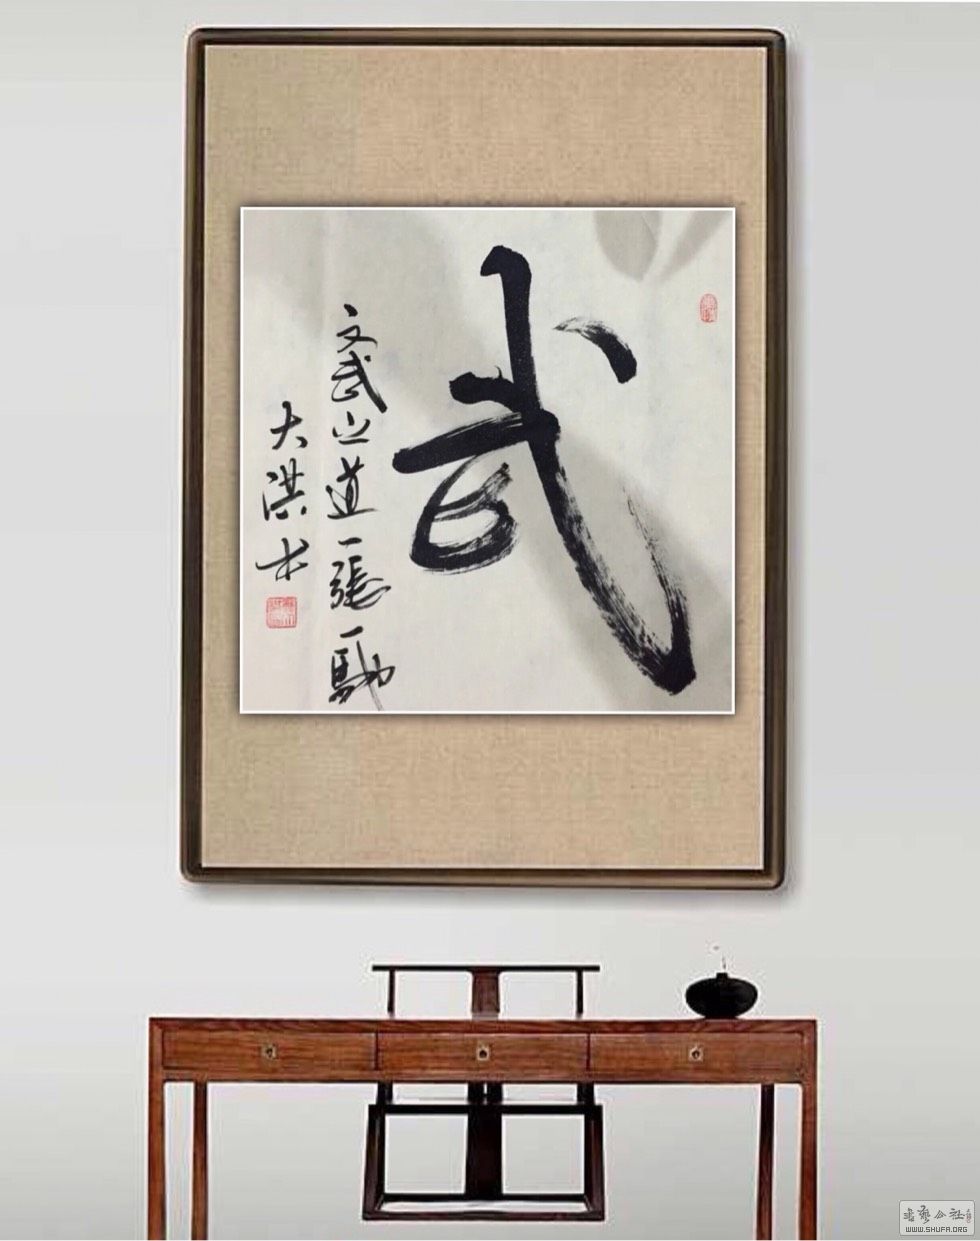 武
文武之道一張一馳
大洪书
书艺公社
WWW.SHUFA.ORG